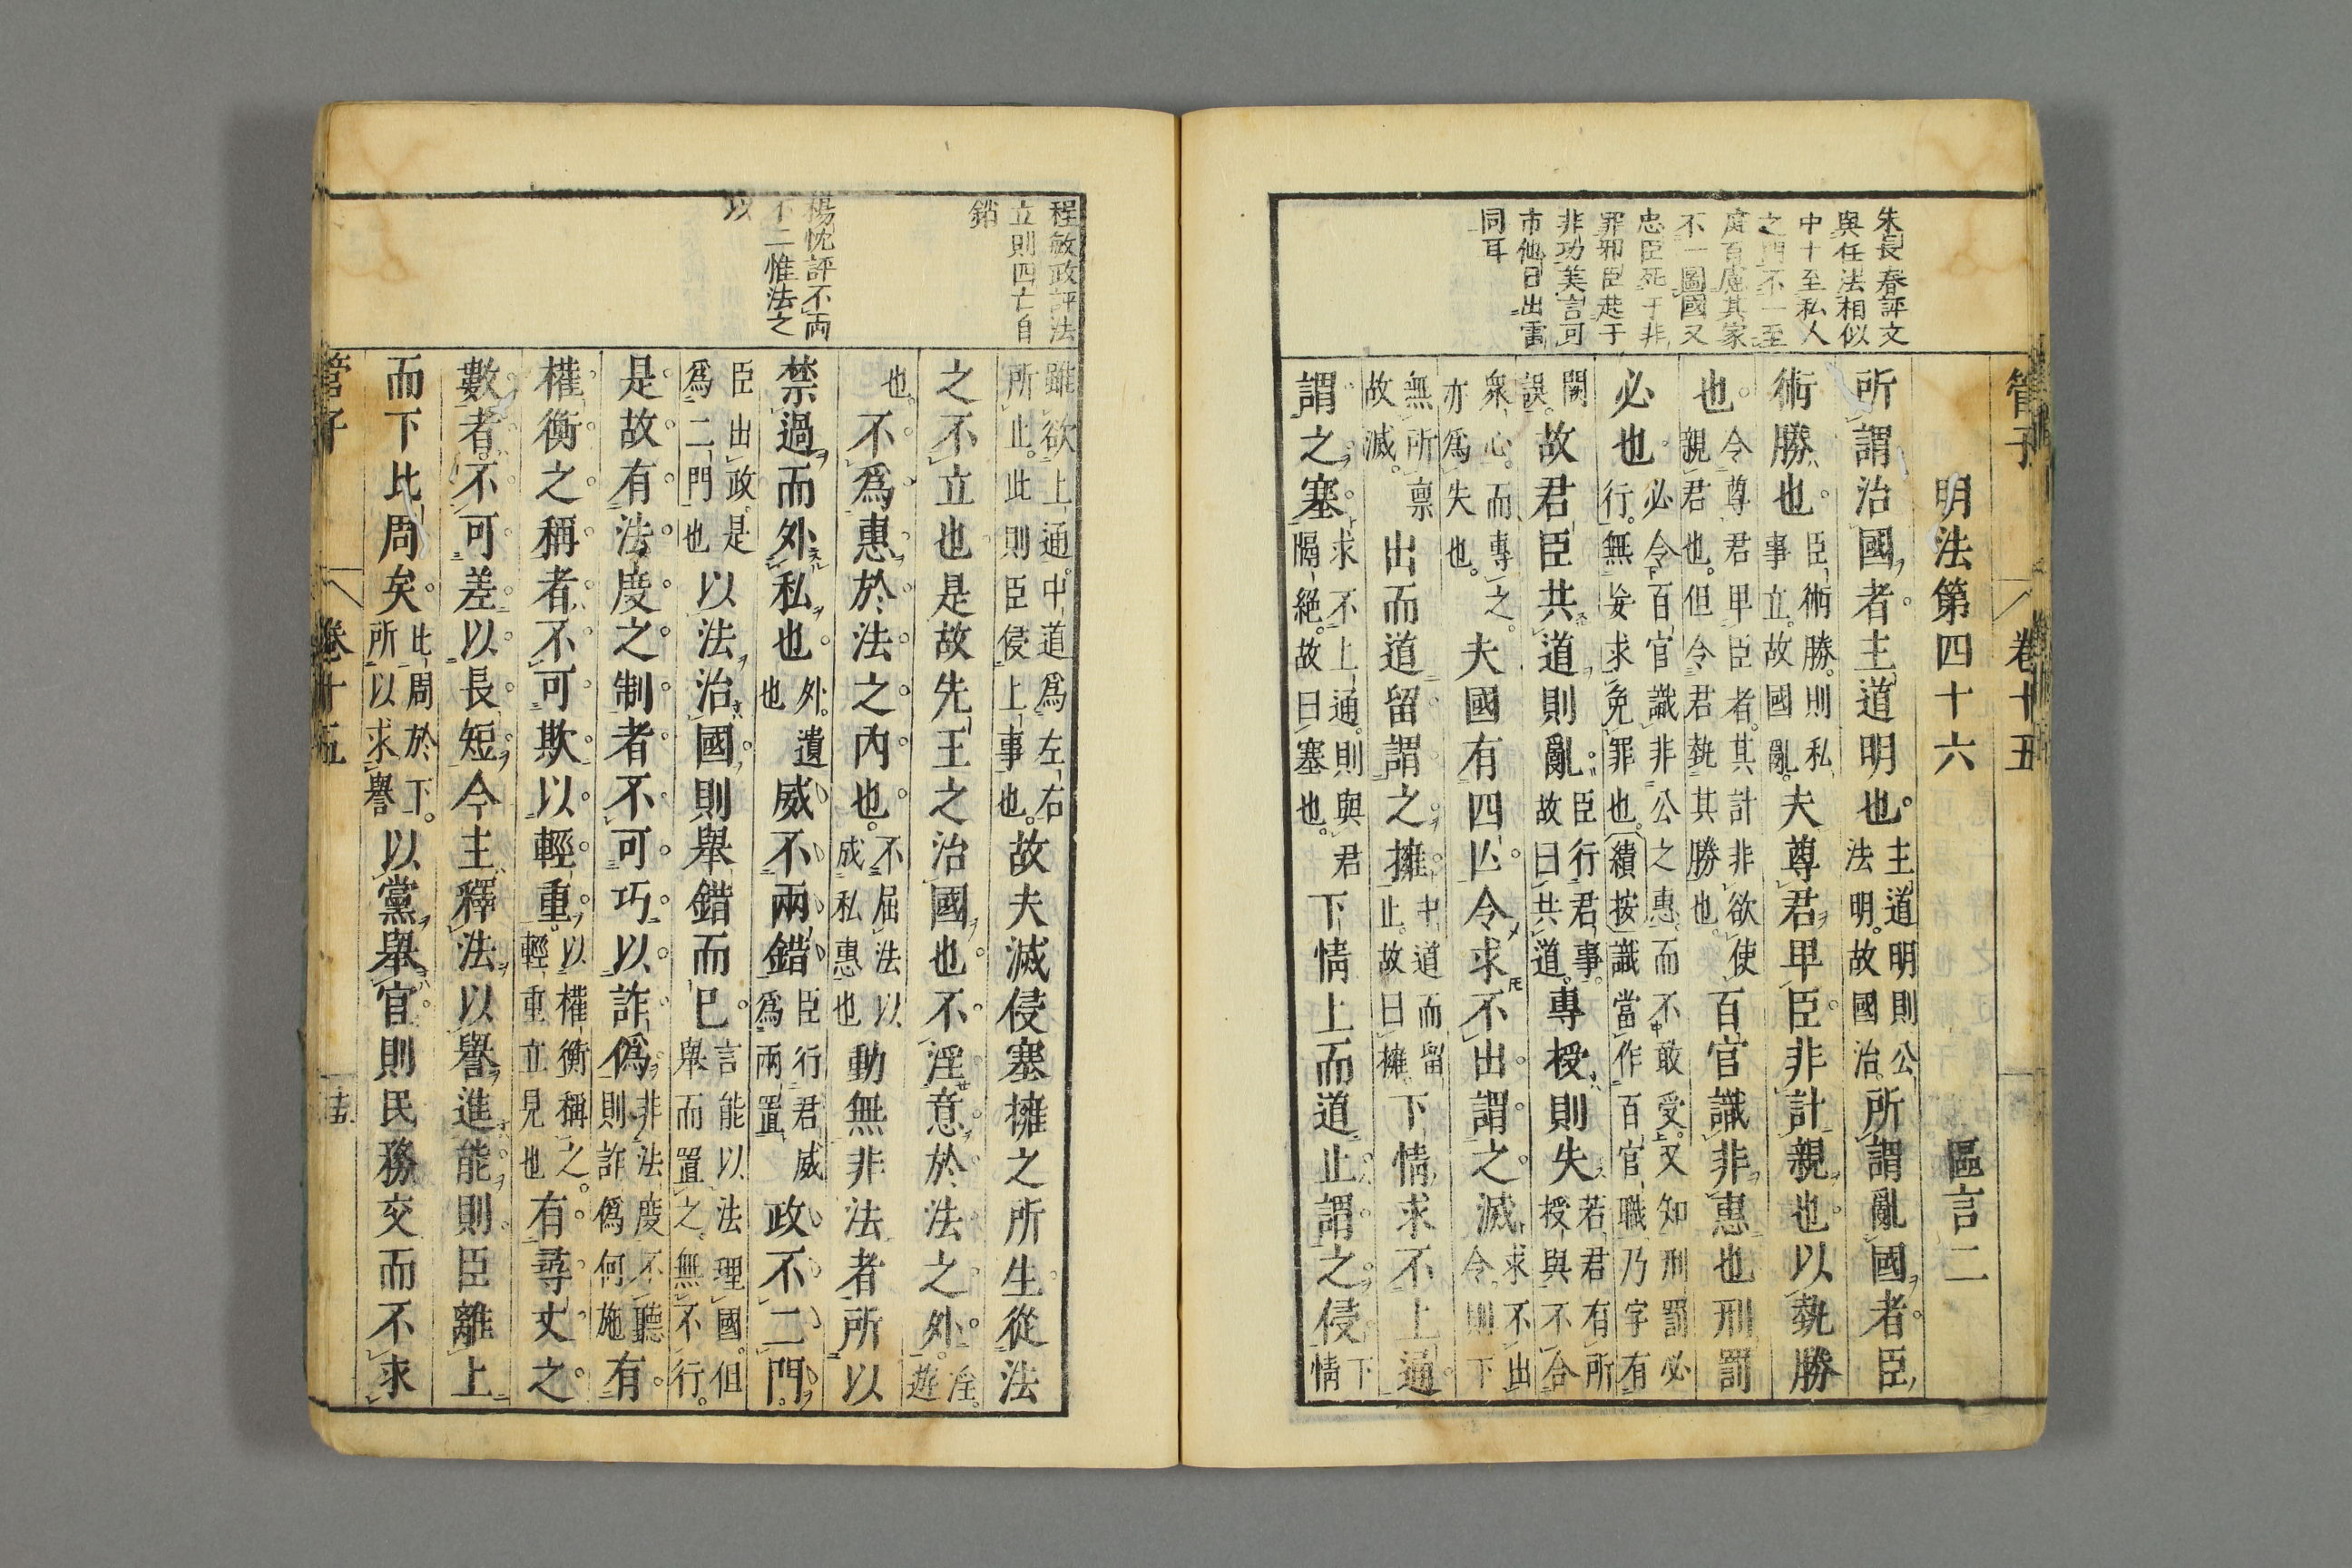 管子 卷十五
明法第四十六 區言二
所謂治國者。主道明也。主道明則公法明。故國治。所謂亂國者。臣
術勝也。臣術勝。則私事立。故國亂。夫尊君卑臣。非計親也。以埶勝
也。令尊君卑臣者。其計非欲使親君也。但令君埶其勝也。百官識非惠也刑罰
必也。必令百官識非公之惠。而不敢受。又知刑罰必行。無妄求免罪也。〔續按〕識當作百官職乃字有
闕誤。故君臣共道則亂。臣行君事。故曰共道。專授則失。若君有所授與不合
衆心。而專之。亦爲失也。夫國有四亡。令求不出。謂之滅。求不出令則下
無所稟故滅。出而道留。謂之擁。中道而留止。故曰擁。下情求不上通。
謂之塞。求不上通。則與君隔絕。故曰塞也。下情上而道止。謂之侵。下情
朱長春評文
與任法相似
中十至私人
之門不一至
庭百慮其家
不一圖國又
忠臣死于非
罪邪臣起于
非功美言可
市他日出雷
同耳
雖欲上通。中道爲左右所止。此則臣侵上事也。故夫滅侵塞擁之所生從法
之不立也是故先王之治國也。不淫意於法之外。淫遊
也。不爲惠於法之內也。不屈法以成私惠也動無非法者所以
禁過而外私也。外。遺也威不兩錯臣行君威爲兩置政不二門。
臣出政。是爲二門也以法治國。則舉錯而已。言能以法理國。但舉而置之。無不行。
是故有法度之制者。不可巧以詐僞。非法度不聽則詐僞何施有
權衡之稱者。不可欺以輕重。以權衡稱之。輕重立見也有尋丈之
數者。不可差以長短。今主釋法以譽進能。則臣離上
而下比周矣。比周於下。所以求譽以黨舉官。則民務交而不求
管子 卷十五
程敏政評法
立則四亡自
銷
楊忱評不兩
不二惟法之
以